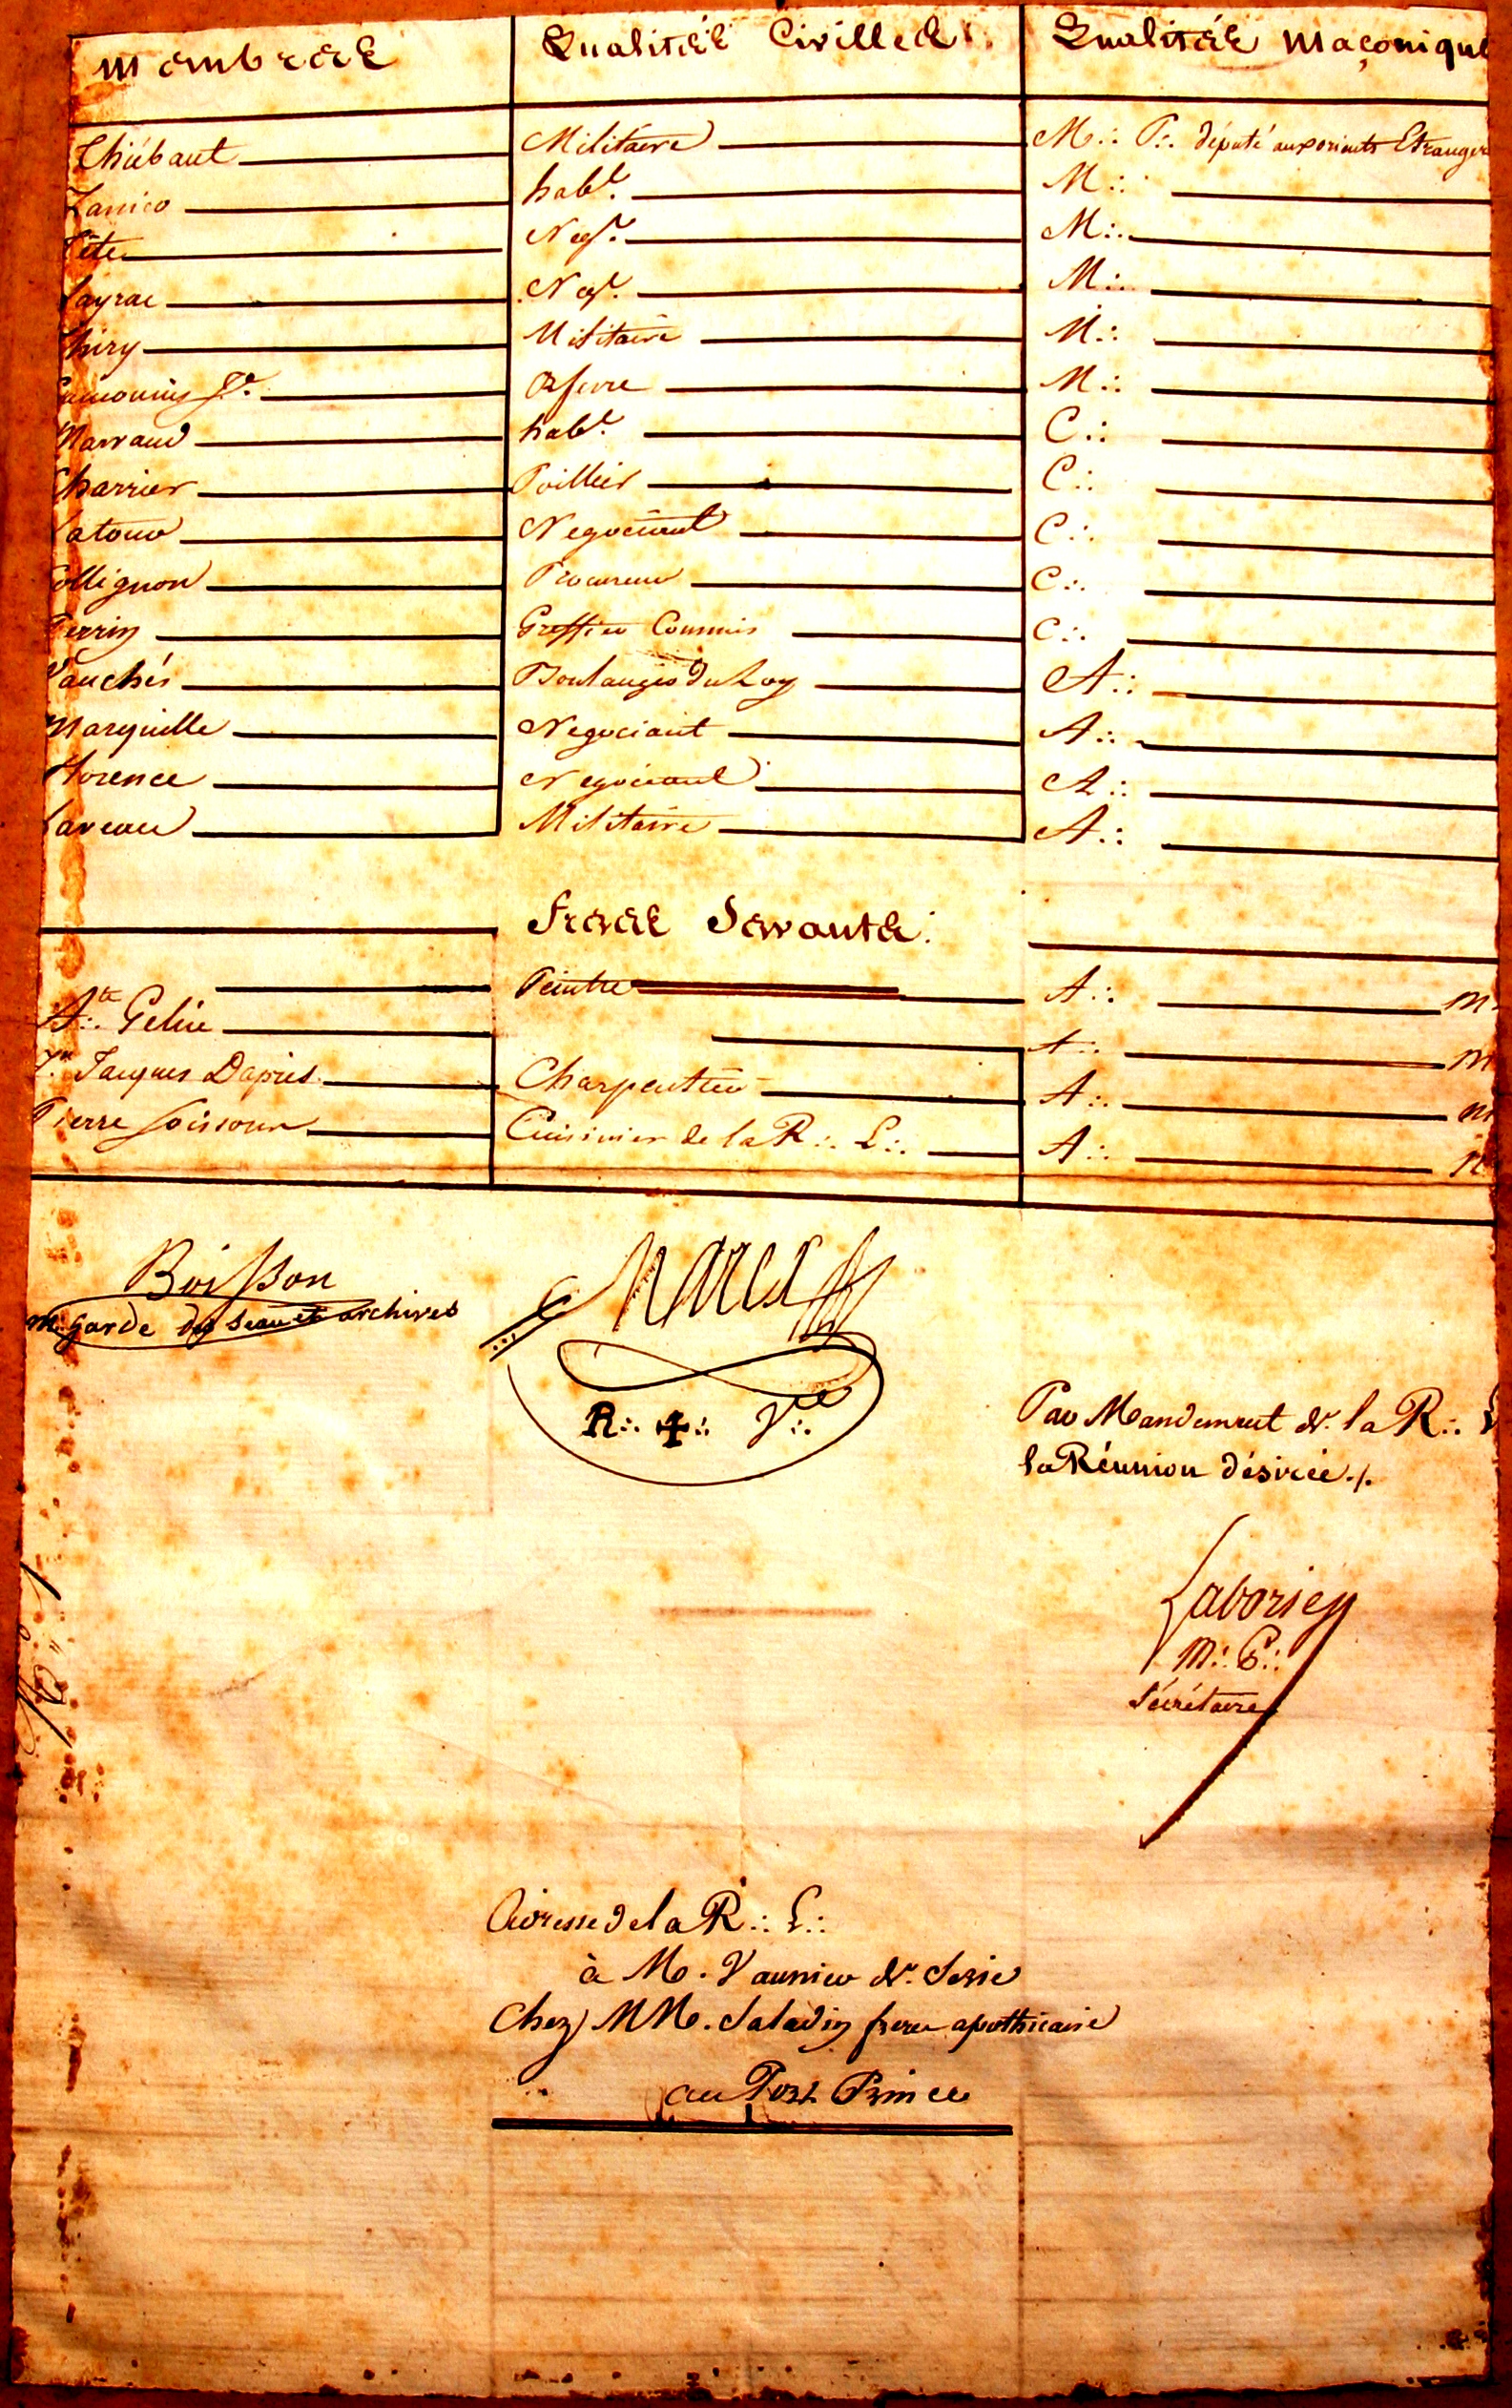 Membres Qualités Civilles. Qualités Maçonique
Thiébaut Militaire M∴ P∴ député aux orients Etranger
Zanico habt. M∴
Tête Negt. M∴
Layrac Negt. M∴
Thiry Militaire M∴
Je. Orfevre M∴
Marraud habt. C∴
Charrier Poillier C∴
Latour Negociant C∴
Collignon Procureur C∴
Perrin Greffier Commis C∴
Vauchés Boulanger du Roy A∴
Marquille Negociant A∴
Florence Negociant A∴
Laveau Militaire A∴
Freres Servants.
Peintre A∴ M
Ate∴ Gelin A∴ M
Jn. Jacques Dapres Charpentier A∴ M
Pierre Soissons Cuisinier de la R∴ L∴ A∴ M
Boisson
M∴ garde des Sceau et archives
R∴ ✠∴ Vble∴
Par Mandement de la R∴ L
la Réunion désirée ./.
Laborie
M∴ P∴
Sécrétaire
Adresse de la R∴ L∴
à M. Vaunier de Serie
Chez MM. Saladin freres apothicaire
au Port Prince